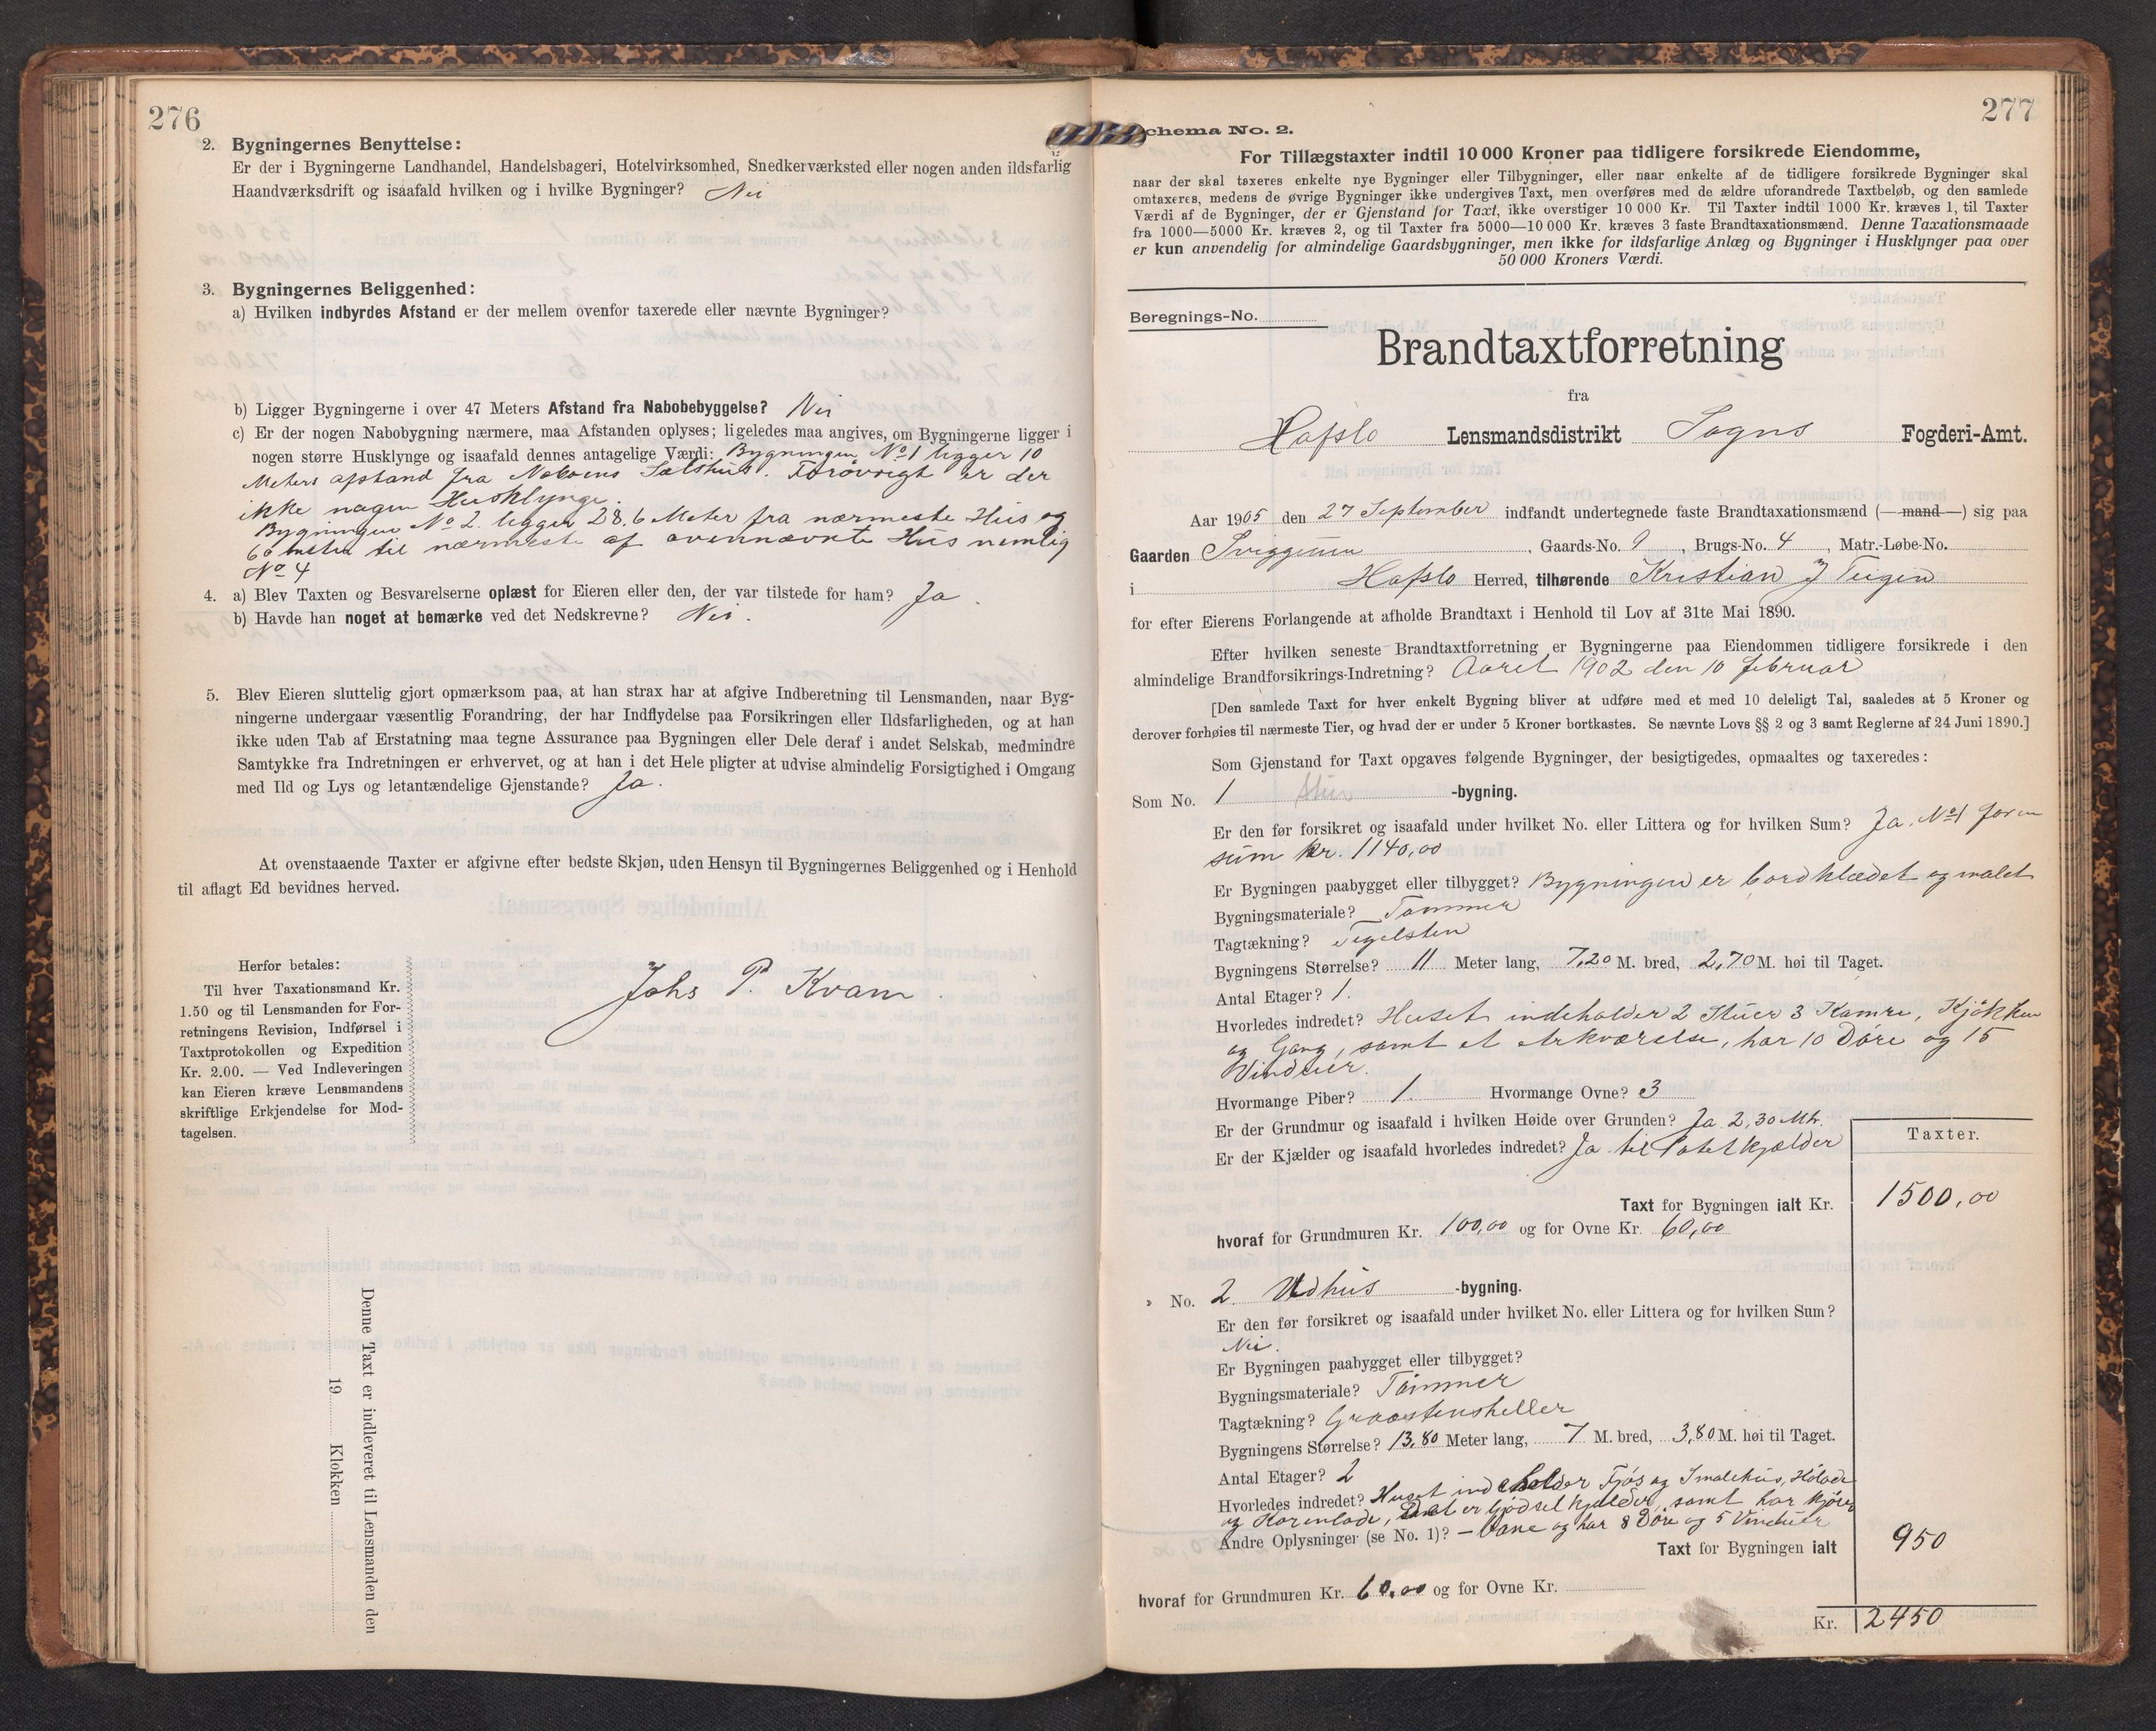 276
2. Bygningernes Benyttelse:
Er der i Bygningerne Landhandel, Handelsbageri, Hotelvirksomhed, Snedkerværksted eller nogen anden ildsfarlig
Haandværksdrift og isaafald hvilken og i hvilke Bygninger? Nei
3. Bygningernes Beliggenhed:
a) Hvilken indbyrdes Afstand er der mellem ovenfor taxerede eller nævnte Bygninger?
b) Ligger Bygningerne i over 47 Meters Afstand fra Nabobebyggelse? Nei
c) Er der nogen Nabobygning nærmere, maa Afstanden oplyses; ligeledes maa angives, om Bygningerne ligger i
nogen større Husklynge og isaafald dennes antagelige Værdi: Bygningen No 1 ligger 10
Meters afstand fra Naboens Sælshus. Forøvrigt er der
ikke nogen Husklynge.
Bygningen No 2. ligger 28.6 Meter fra nærmeste Hus og
60 meter til nærmeste af ovennævnte Hus nemlig
No 4
4. a) Blev Taxten og Besvarelserne oplæst for Eieren eller den, der var tilstede for ham? Ja.
b) Havde han noget at bemærke ved det Nedskrevne? Nei.
5. Blev Eieren sluttelig gjort opmærksom paa, at han strax har at afgive Indberetning til Lensmanden, naar Byg-
ningerne undergaar væsentlig Forandring, der har Indflydelse paa Forsikringen eller Ildsfarligheden, og at han
ikke uden Tab af Erstatning maa tegne Assurance paa Bygningen eller Dele deraf i andet Selskab, medmindre
Samtykke fra Indretningen er erhvervet, og at han i det Hele pligter at udvise almindelig Forsigtighed i Omgang
med Ild og Lys og letantændelige Gjenstande? Ja.
At ovenstaaende Taxter er afgivne efter bedste Skjøn, uden Hensyn til Bygningernes Beliggenhed og i Henhold
til aflagt Ed bevidnes herved.
Herfor betales:
Til hver Taxationsmand Kr.
1.50 og til Lensmanden for For-
retningens Revision, Indførsel i
Taxtprotokollen og Expedition
Kr. 2.00. — Ved Indleveringen
kan Eieren kræve Lensmandens
skriftlige Erkjendelse for Mod-
tagelsen.
Johs P. Kvam.
Denne Taxt er indleveret til Lensmanden den
19 Klokken
277
chema No. 2.
For Tillægstaxter indtil 10 000 Kroner paa tidligere forsikrede Eiendomme,
naar der skal taxeres enkelte nye Bygninger eller Tilbygninger, eller naar enkelte af de tidligere forsikrede Bygninger skal
omtaxeres, medens de øvrige Bygninger ikke undergives Taxt, men overføres med de ældre uforandrede Taxtbeløb, og den samlede
Værdi af de Bygninger, der er Gjenstand for Taxt, ikke overstiger 10 000 Kr. Til Taxter indtil 1000 Kr. kræves 1, til Taxter
fra 1000—5000 Kr. kræves 2, og til Taxter fra 5000—10 000 Kr. kræves 3 faste Brandtaxationsmænd. Denne Taxationsmaade
er kun anvendelig for almindelige Gaardsbygninger, men ikke for ildsfarlige Anlæg og Bygninger i Husklynger paa over
50 000 Kroners Værdi.
Beregnings-No.
Brandtaxtforretning
fra
Hafslo Lensmandsdistrikt Sogns Fogderi-Amt.
Aar 1905 den 27 September indfandt undertegnede faste Brandtaxationsmænd (—mand—) sig paa
Gaarden Sviggum, Gaards-No. 9, Brugs-No. 4, Matr.-Løbe-No.
i Hafslo Herred, tilhørende Kristian J Teigen
for efter Eierens Forlangende at afholde Brandtaxt i Henhold til Lov af 31te Mai 1890.
Efter hvilken seneste Brandtaxtforretning er Bygningerne paa Eiendommen tidligere forsikrede i den
almindelige Brandforsikrings-Indretning? Aaret 1902 den 10 februar
[Den samlede Taxt for hver enkelt Bygning bliver at udføre med et med 10 deleligt Tal, saaledes at 5 Kroner og
derover forhøies til nærmeste Tier, og hvad der er under 5 Kroner bortkastes. Se nævnte Lovs §§ 2 og 3 samt Reglerne af 24 Juni 1890.]
Som Gjenstand for Taxt opgaves følgende Bygninger, der besigtigedes, opmaaltes og taxeredes:
Som No. 1 Stue -bygning.
Er den før forsikret og isaafald under hvilket No. eller Littera og for hvilken Sum? Ja. No 1 for en
sum kr. 1140,00
Er Bygningen paabygget eller tilbygget? Bygningen er bordklædet og malet
Bygningsmateriale? Tømmer
Tagtækning? Tegelsten
Bygningens Størrelse? 11 Meter lang, 7,20 M. bred, 2,70 M. høi til Taget.
Antal Etager? 1.
Hvorledes indredet? Huset indeholder 2 Stuer 3 Kamre, Kjøkken
og Gang, samt et Arkværelse, har 10 Døre og 15
Vinduer.
Hvormange Piber? 1. Hvormange Ovne? 3
Er der Grundmur og isaafald i hvilken Høide over Grunden? Ja 2,30 Mtr.
Er der Kjælder og isaafald hvorledes indredet? Ja til Potetkjælder
Taxter.
Taxt for Bygningen ialt Kr. 1500,00
hvoraf for Grundmuren Kr. 100,00 og for Ovne Kr. 60,00
» No. 2. Udhus -bygning.
Er den før forsikret og isaafald under hvilket No. eller Littera og for hvilken Sum?
Nei.
Er Bygningen paabygget eller tilbygget?
Bygningsmateriale? Tømmer
Tagtækning? Graastensheller
Bygningens Størrelse? 13,80 Meter lang, 7 M. bred, 3,80 M. høi til Taget.
Antal Etager? 2
Hvorledes indredet? Huset indeholder Fjøs og Smalehus, Hølade
og Kornlade, Det er Gjødselkjelder, samt har kjøre
Andre Oplysninger (se No. 1)? — bane og har 8 Døre og 5 Vinduer
Taxt for Bygningen ialt 950
hvoraf for Grundmuren Kr. 60.00 og for Ovne Kr.
Kr. 2450